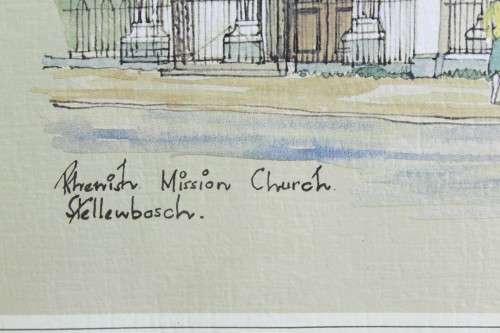 Rhenish Mission Church.
Stellenbosch.